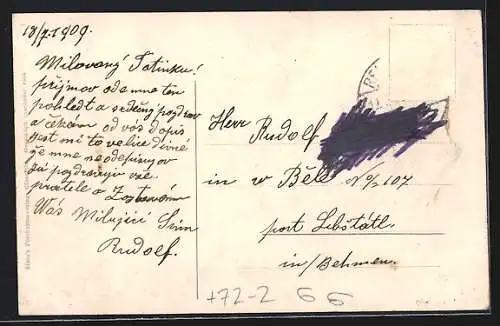 18/7.1909.
Milovaný Tatinku!
přijmov odemne ten
pohledt a srdečný pozdrav
a čekám od vás dopis
jest mi to velice divné
že mne neodepisujou
Já pozdravuju vše
přatele a Zustavám
Wás Milujicí Sin
Rudolf.
Herr Rudolf
in w Běle No 107
post Libštátl.
in/Behmen.
+72-2 66